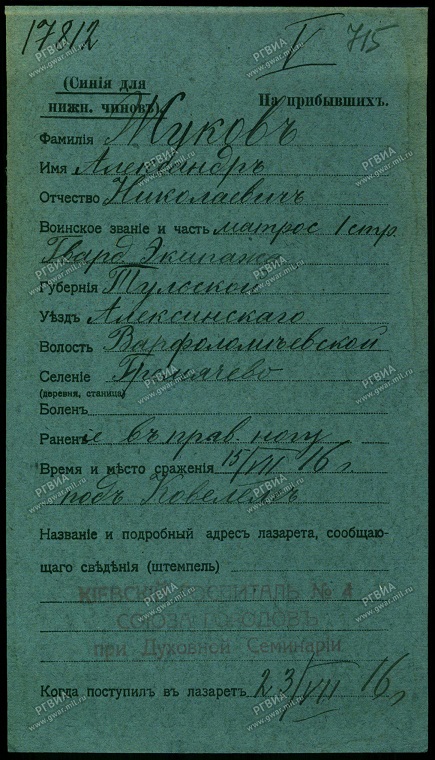 17812
V 715
(Синія для
нижн. чиновъ).
На прибывшихъ.
Фамилія Жуковъ
Имя Александръ
Отчество Николаевичъ
Воинское званіе и часть матрос 1 стр.
Гвард. Экипажа
Губернія Тульской
Уѣздъ Алексинскаго
Волость Варфоломичевской
Селеніе
(деревня, станица)
Боленъ
Раненъ въ прав. ногу
Время и мѣсто сраженія 15/VII 16 г.
подъ Ковелемъ
Названіе и подробный адресъ лазарета, сообщаю-
щаго свѣдѣнія (штемпель)
КІЕВСКІЙ ГОСПИТАЛЬ № 4
СОЮЗА ГОРОДОВЪ
при Духовной Семинаріи
Когда поступил въ лазаретъ 23/VII 16 г.
РГВИА
www.gwar.mil.ru